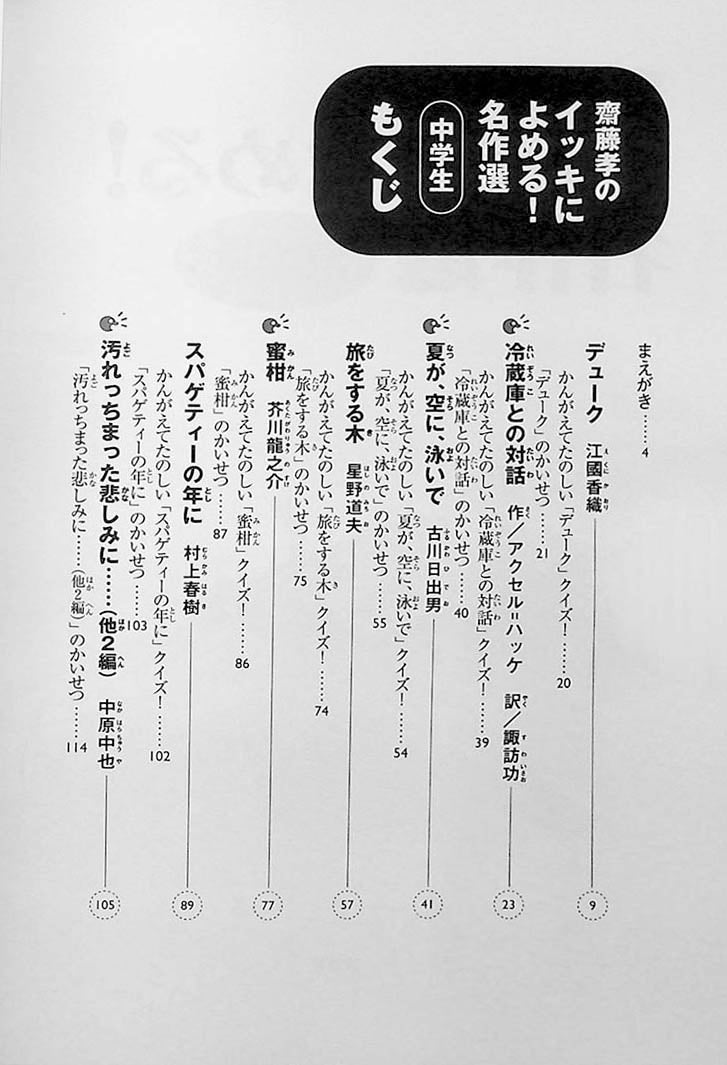 齋藤孝の
イッキに
よめる！
名作選
中学生
もくじ
まえがき……4
デューク 江國香織 9
かんがえてたのしい「デューク」クイズ！……20
「デューク」のかいせつ……21
冷蔵庫との対話 作／アクセル＝ハッケ 訳／諏訪功 23
かんがえてたのしい「冷蔵庫との対話」クイズ！……39
「冷蔵庫との対話」のかいせつ……40
夏が、空に、泳いで 古川日出男 41
かんがえてたのしい「夏が、空に、泳いで」クイズ！……54
「夏が、空に、泳いで」のかいせつ……55
旅をする木 星野道夫 57
かんがえてたのしい「旅をする木」クイズ！……74
「旅をする木」のかいせつ……75
蜜柑 芥川龍之介 77
かんがえてたのしい「蜜柑」クイズ！……86
「蜜柑」のかいせつ……87
スパゲティーの年に 村上春樹 89
かんがえてたのしい「スパゲティーの年に」クイズ！……102
「スパゲティーの年に」のかいせつ……103
汚れっちまった悲しみに……（他2編） 中原中也 105
「汚れっちまった悲しみに……（他2編）」のかいせつ……114